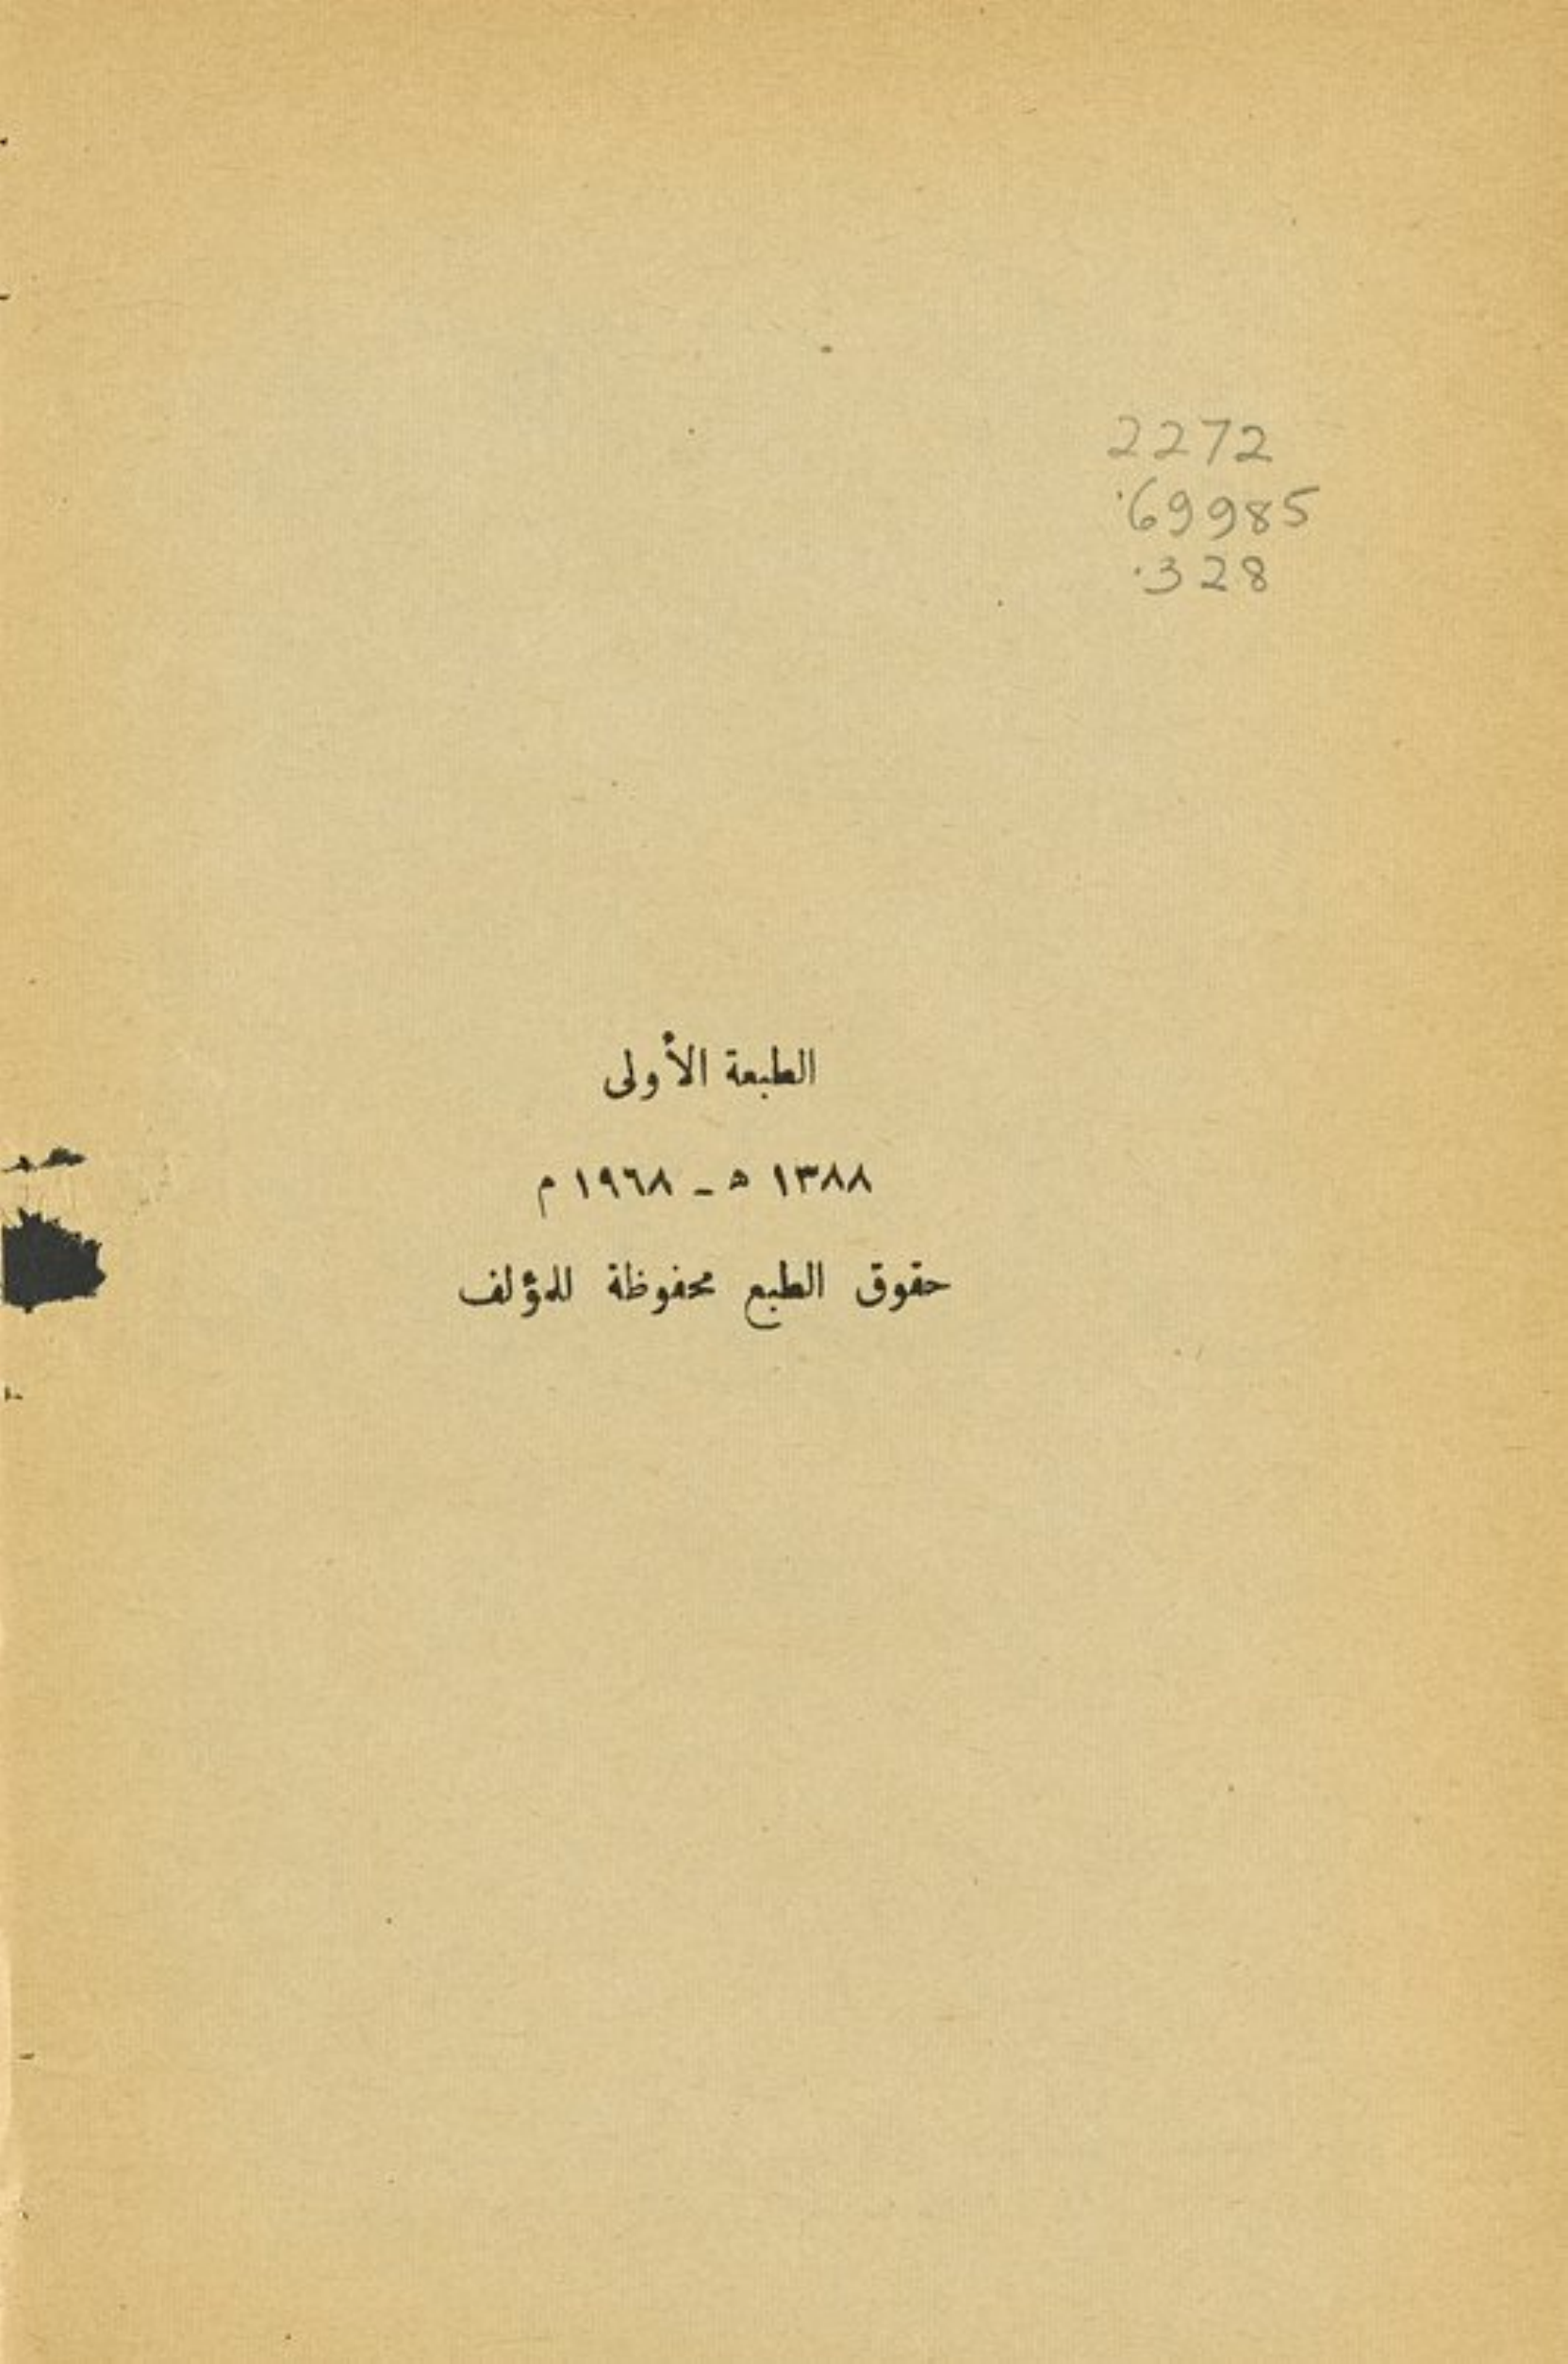 2272
.69985
.328
الطبعة الأولى
١٣٨٨ ه - ١٩٦٨ م
حقوق الطبع محفوظة للمؤلف